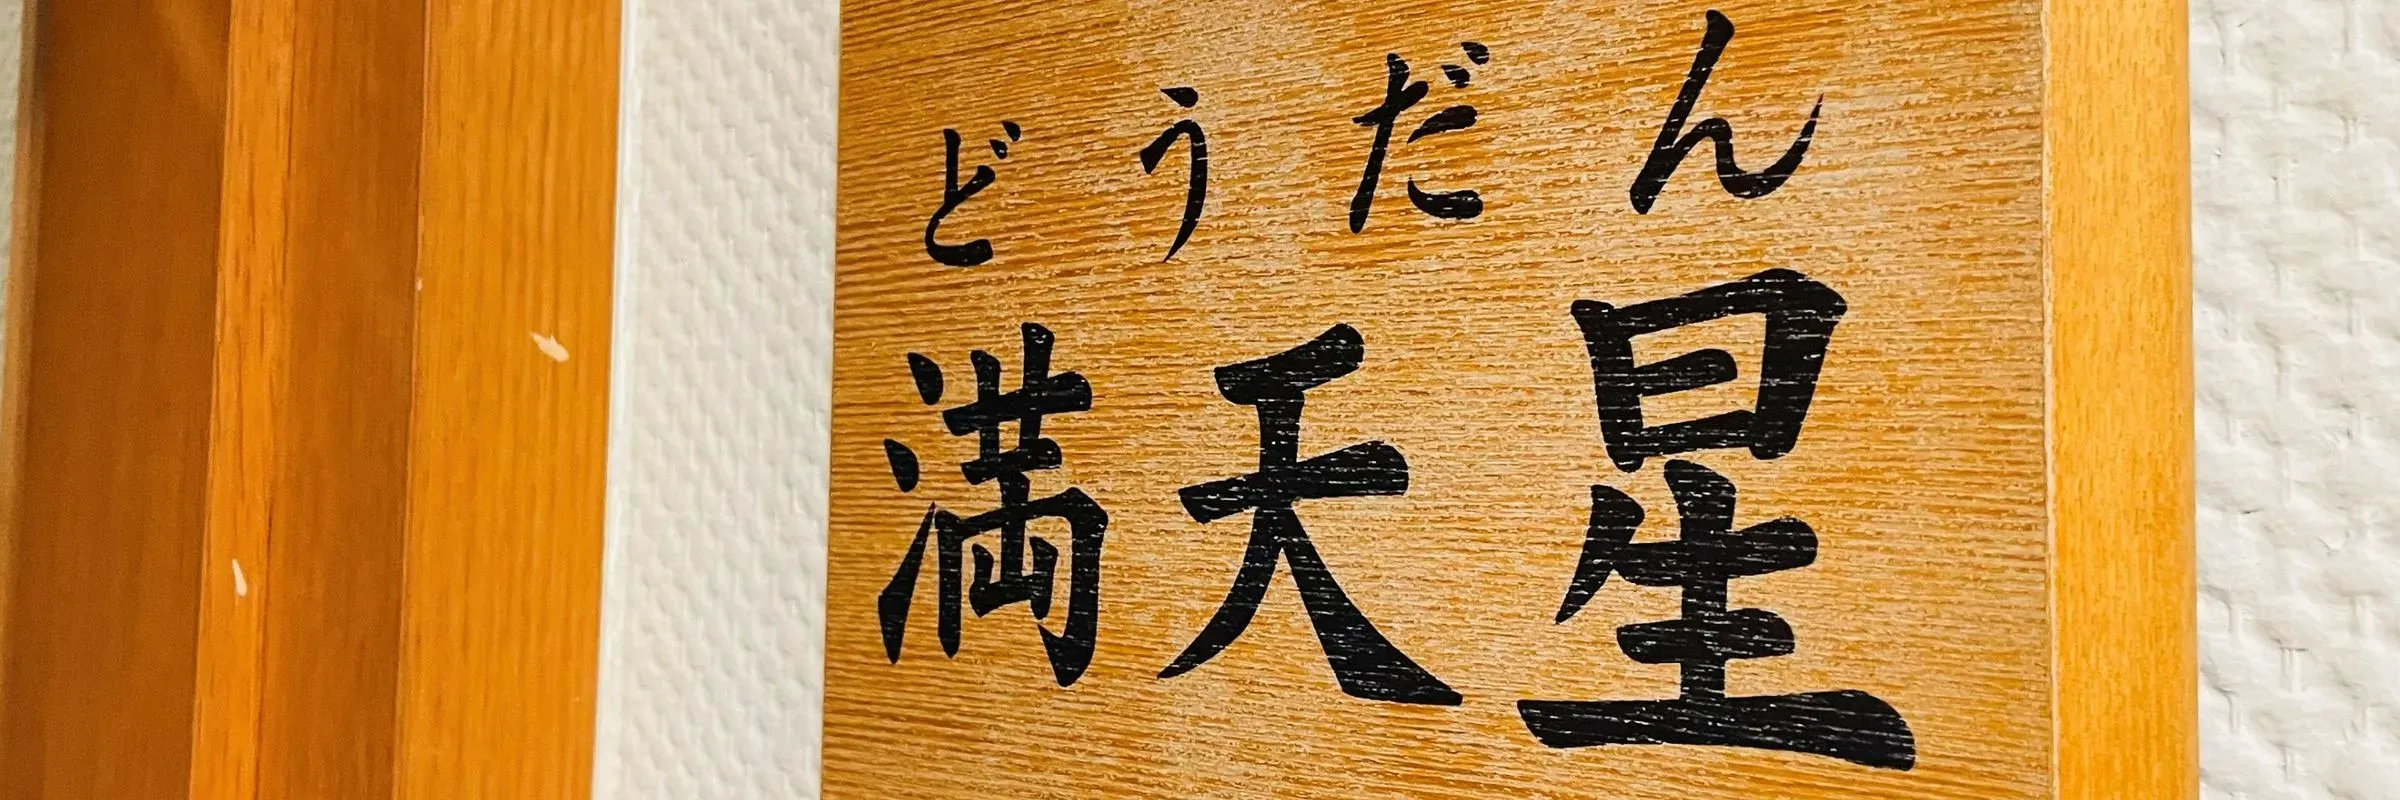 どうだん
満天星